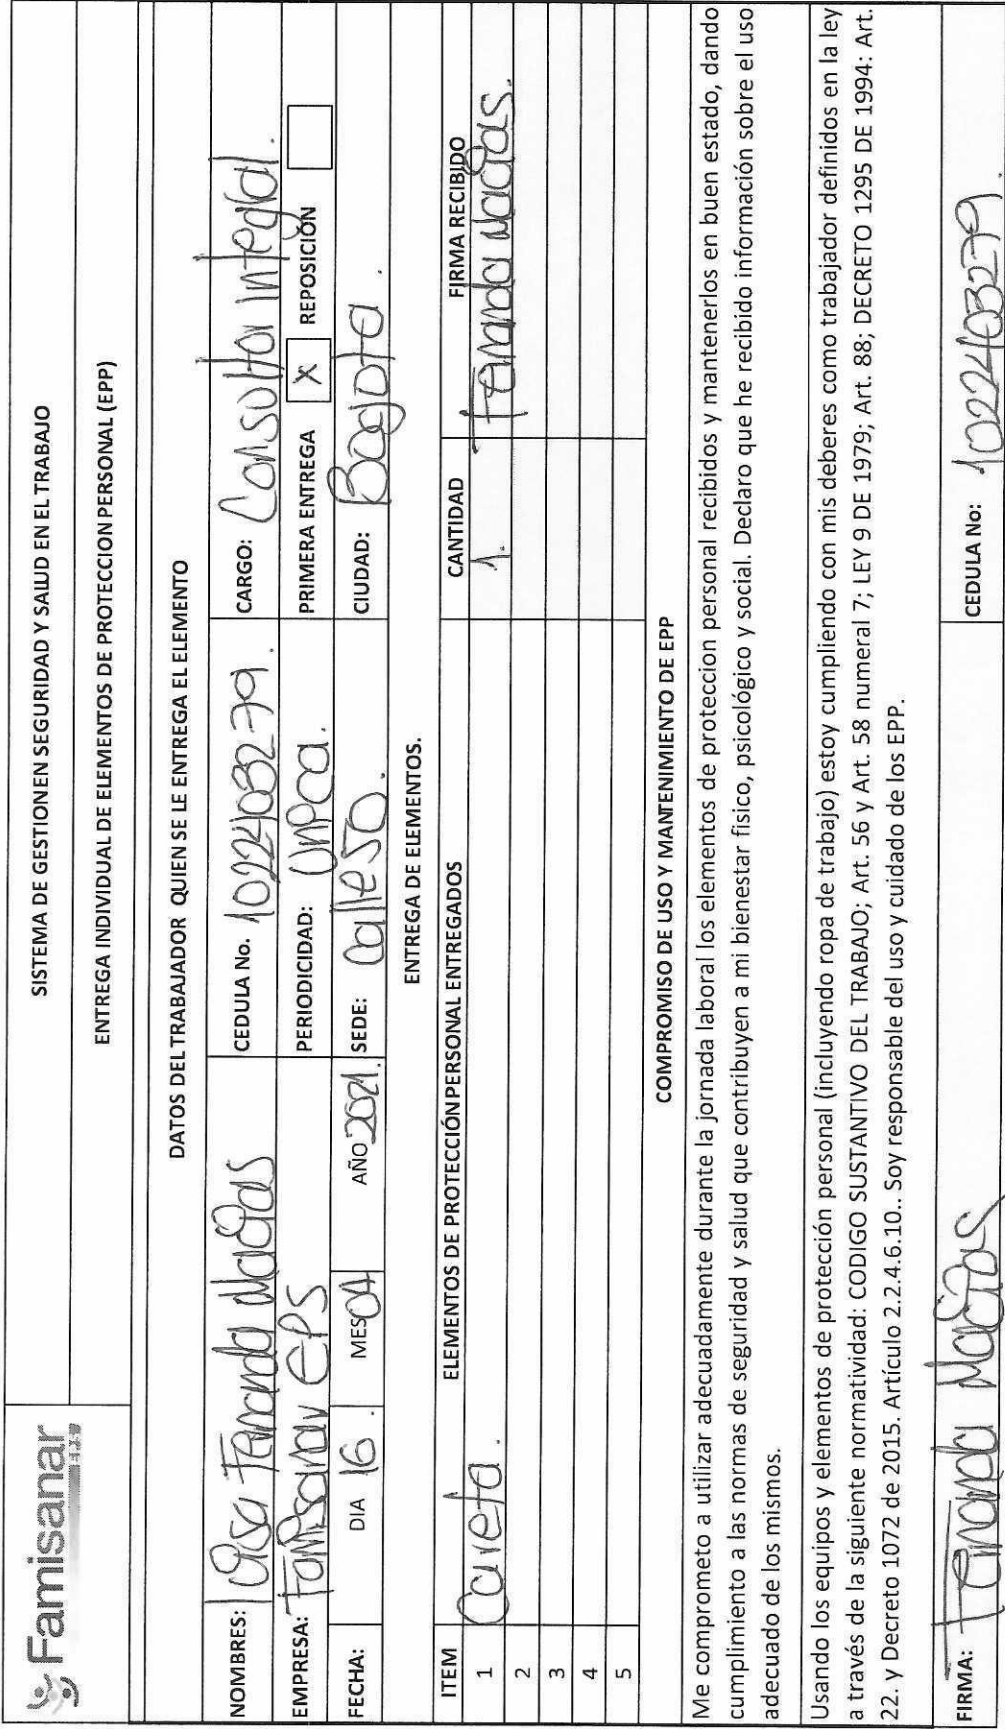 Famisanar
EPS
SISTEMA DE GESTION EN SEGURIDAD Y SALUD EN EL TRABAJO
ENTREGA INDIVIDUAL DE ELEMENTOS DE PROTECCION PERSONAL (EPP)
DATOS DEL TRABAJADOR QUIEN SE LE ENTREGA EL ELEMENTO
NOMBRES: Fernanda Macías CEDULA No. 1022403279. CARGO: Consultor integral.
EMPRESA: Famisanar EPS PERIODICIDAD: unica. PRIMERA ENTREGA X REPOSICIÓN
FECHA: DIA 16. MES 04 AÑO 2021. SEDE: calle 50. CIUDAD: Bogota.
ENTREGA DE ELEMENTOS.
ITEM ELEMENTOS DE PROTECCIÓN PERSONAL ENTREGADOS CANTIDAD FIRMA RECIBIDO
1 Careta. 1. Fernanda Macías.
2
3
4
5
COMPROMISO DE USO Y MANTENIMIENTO DE EPP
Me comprometo a utilizar adecuadamente durante la jornada laboral los elementos de proteccion personal recibidos y mantenerlos en buen estado, dando
cumplimiento a las normas de seguridad y salud que contribuyen a mi bienestar fisico, psicológico y social. Declaro que he recibido información sobre el uso
adecuado de los mismos.
Usando los equipos y elementos de protección personal (incluyendo ropa de trabajo) estoy cumpliendo con mis deberes como trabajador definidos en la ley
a través de la siguiente normatividad: CODIGO SUSTANTIVO DEL TRABAJO; Art. 56 y Art. 58 numeral 7; LEY 9 DE 1979; Art. 88; DECRETO 1295 DE 1994: Art.
22. y Decreto 1072 de 2015. Artículo 2.2.4.6.10.. Soy responsable del uso y cuidado de los EPP.
FIRMA: Fernanda Macías CEDULA No: 1022403279.